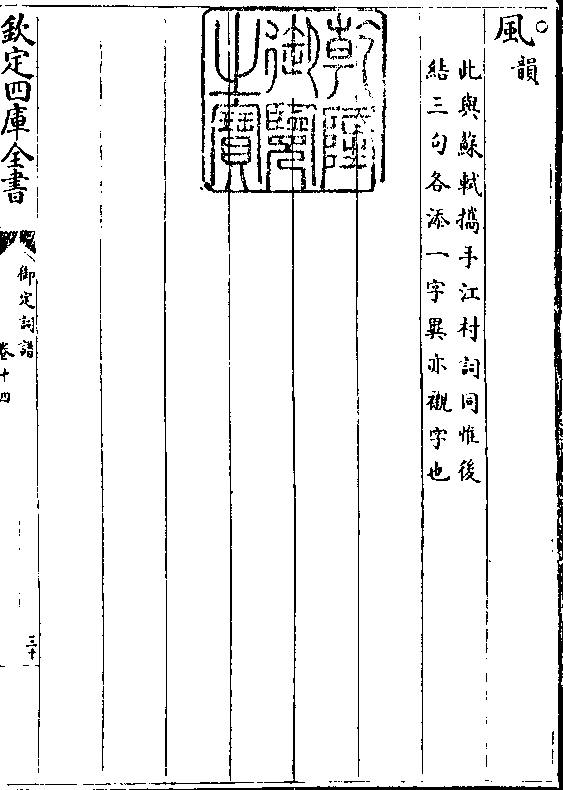 風○韻
此與蘇軾攜手江村詞同惟後
結三句各添一字異亦襯字也
乾隆御覽之寶
欽定四庫全書
御定詞譜
卷十四
三十